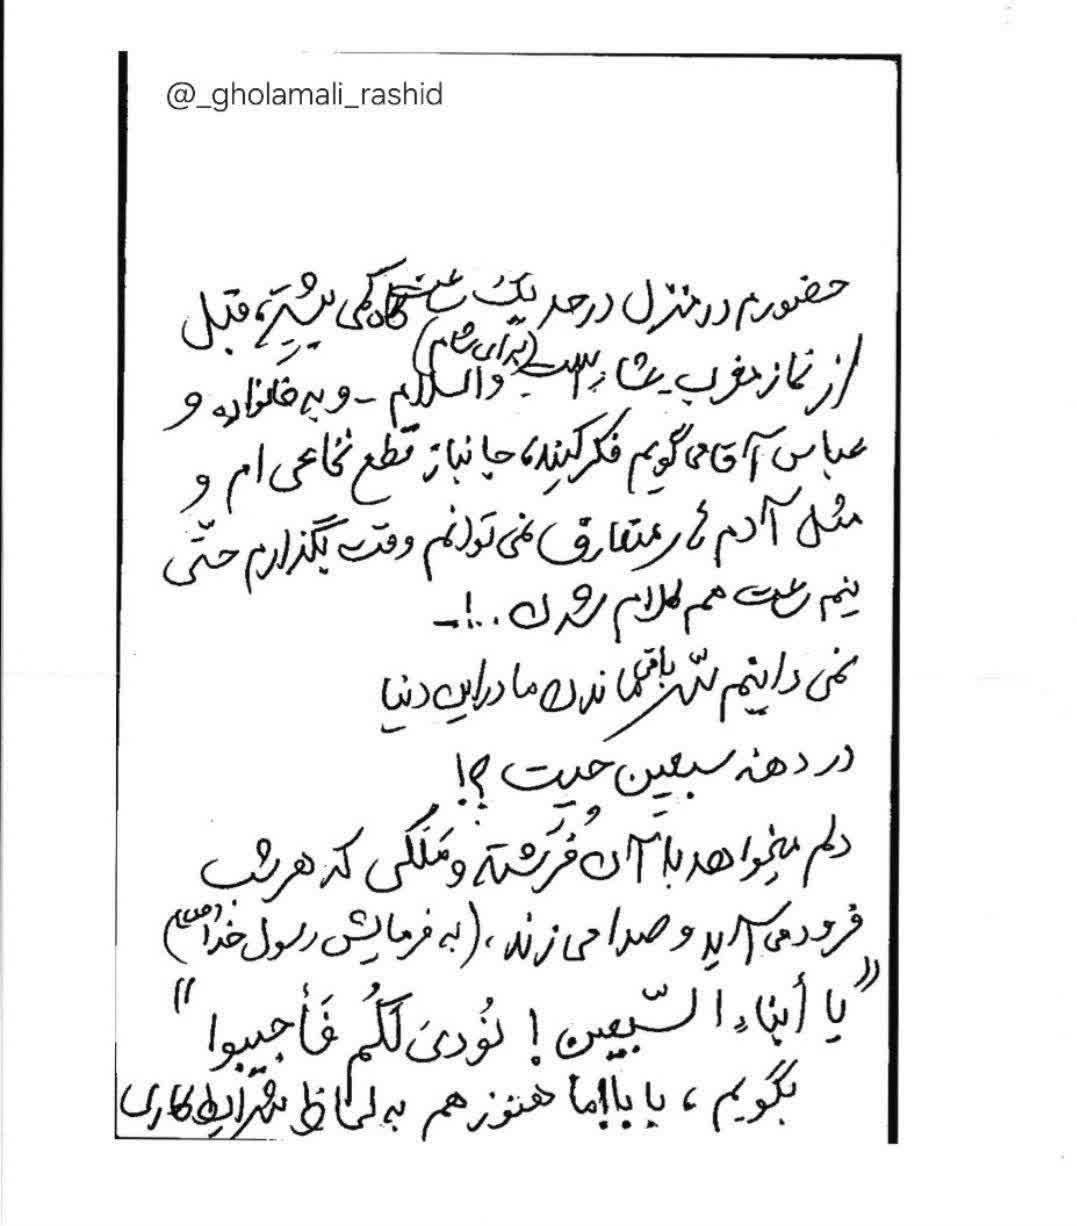 @_gholamali_rashid
حضورم در منزل در حد یک ساعت گاه کمی بیشتر، قبل
از نماز مغرب عشاء است (برای شام) والسلام - و به خانواده و
عباس آقا می گویم فکر کنید، جانباز قطع نخاعی ام و
مثل آدم های متعارف نمی توانم وقت بگذارم حتّی
نیم ساعت هم کلام شدن ..!-
نمی دانیم سّر باقی ماندن ما در این دنیا
در دهه سبعین چیست ؟!
دلم میخواهد با آن فرشته و مَلَکی که هر شب
فرود می آید و صدا می زند، (به فرمایش رسول خدا (ص))
"یا أبناء السّبعین ! نُودیَ لَکُم فَأجیبوا"
بگویم، بابا اما هنوز هم به لحاظ شرایط کاری